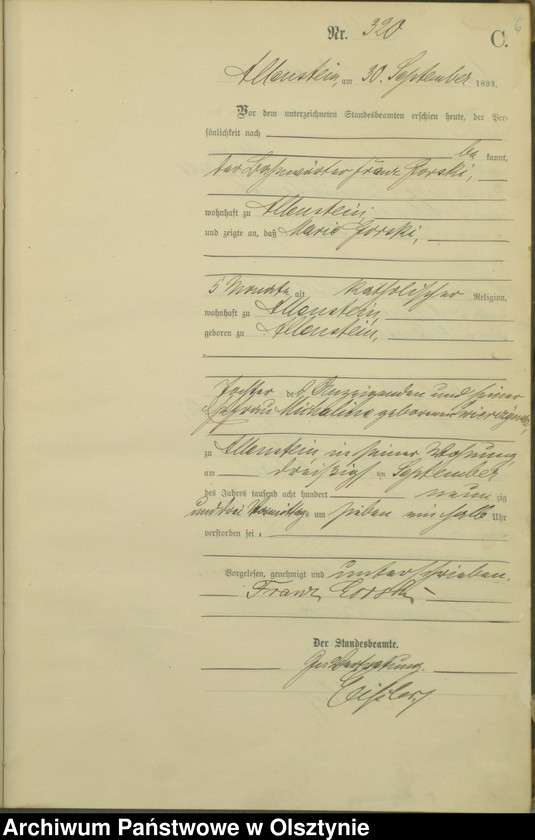 6
Nr. 320
C.
Allenstein, am 30. September 1893.
Vor dem unterzeichneten Standesbeamten erschien heute, der Per-
sönlichkeit nach
be kannt,
der Bahnwärter Franz Gorski,
wohnhaft zu Allenstein,
und zeigte an, daß Marie Gorski,
5 Monate alt katholischer Religion,
wohnhaft zu Allenstein,
geboren zu Allenstein,
Tochter des Anzeigenden und seiner
Ehefrau Micheline geborenen
zu Allenstein in seiner Wohnung
am dreißigsten September
des Jahres tausend acht hundert neun zig
und drei Vormittags um sieben einhalb Uhr
verstorben sei.
Vorgelesen, genehmigt und unterschrieben.
Franz Gorski
Der Standesbeamte.
In Vertretung.
Archiwum Państwowe w Olsztynie